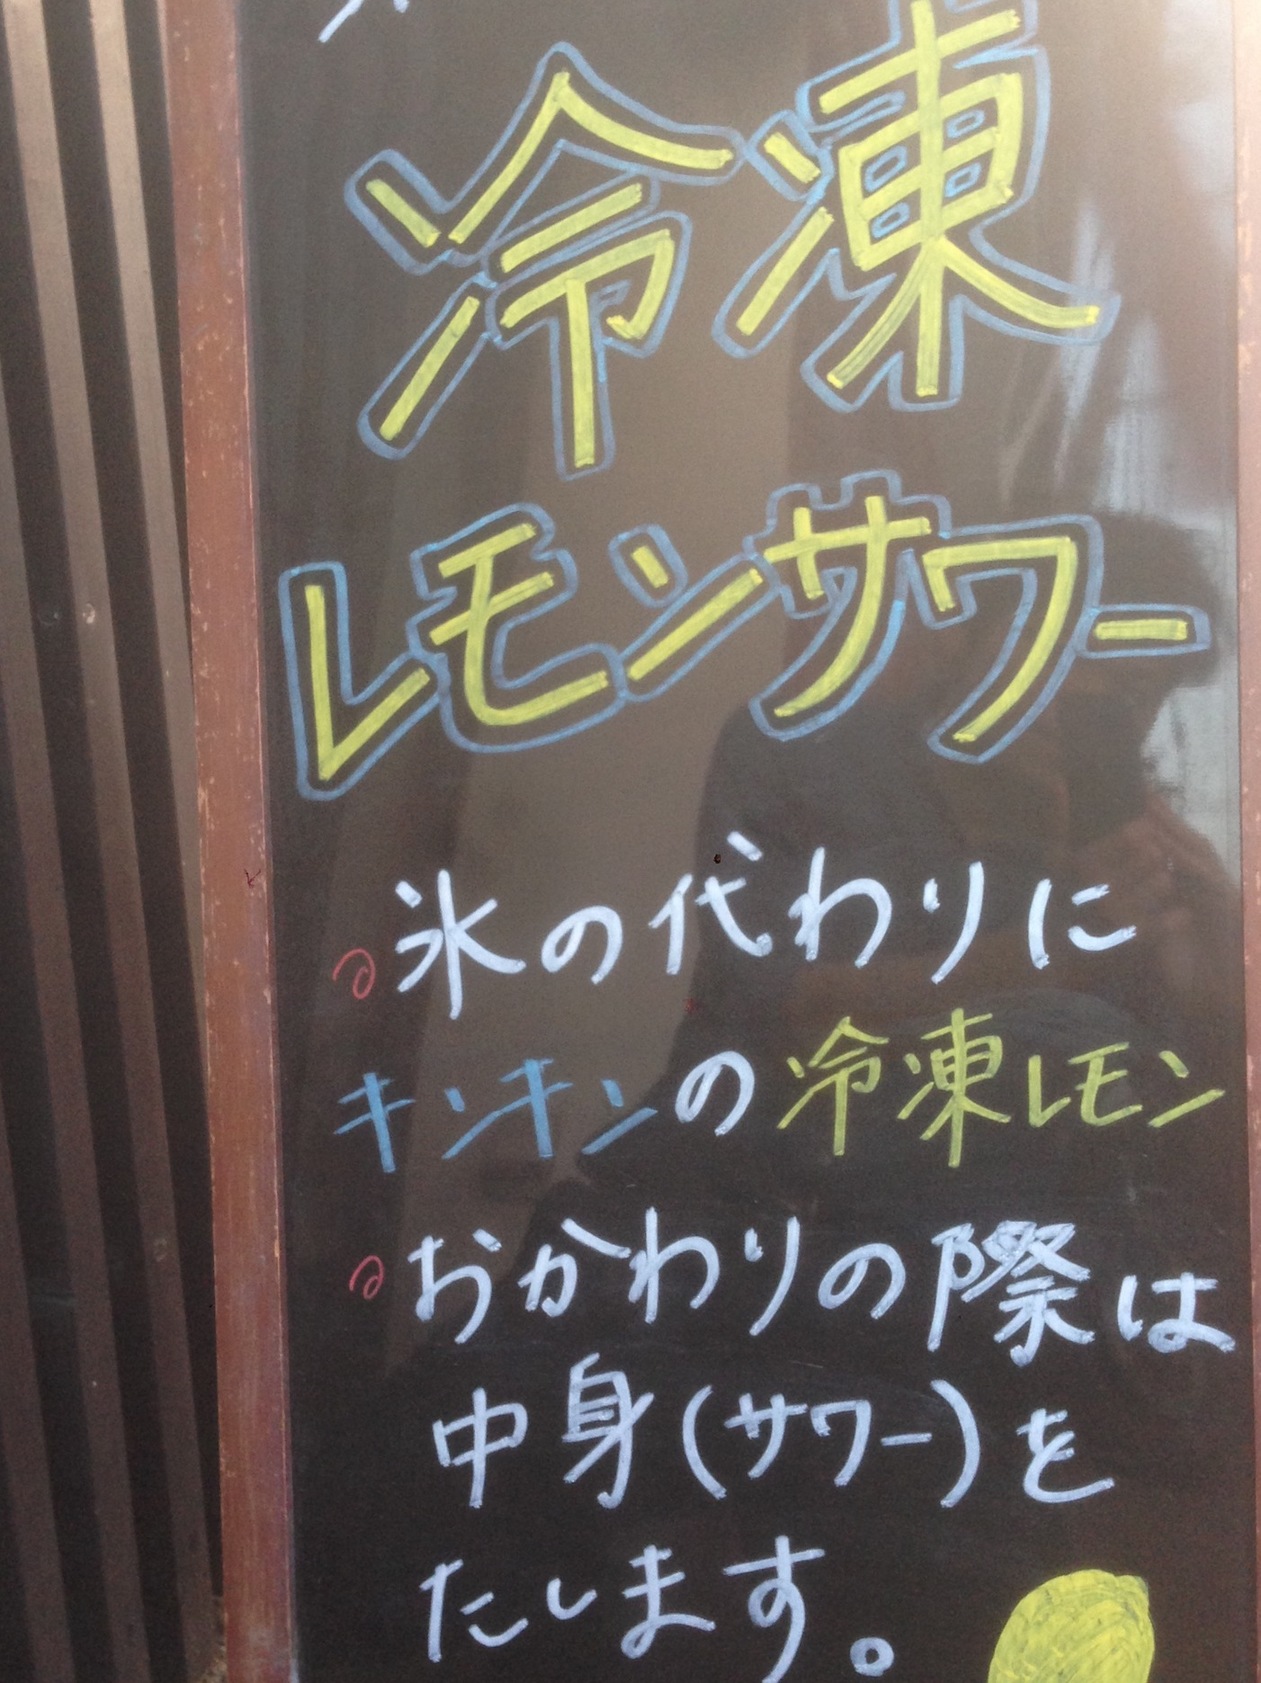 冷凍
レモンサワー
氷の代わりに
キンキンの冷凍レモン
おかわりの際は
中身(サワー)を
たします。